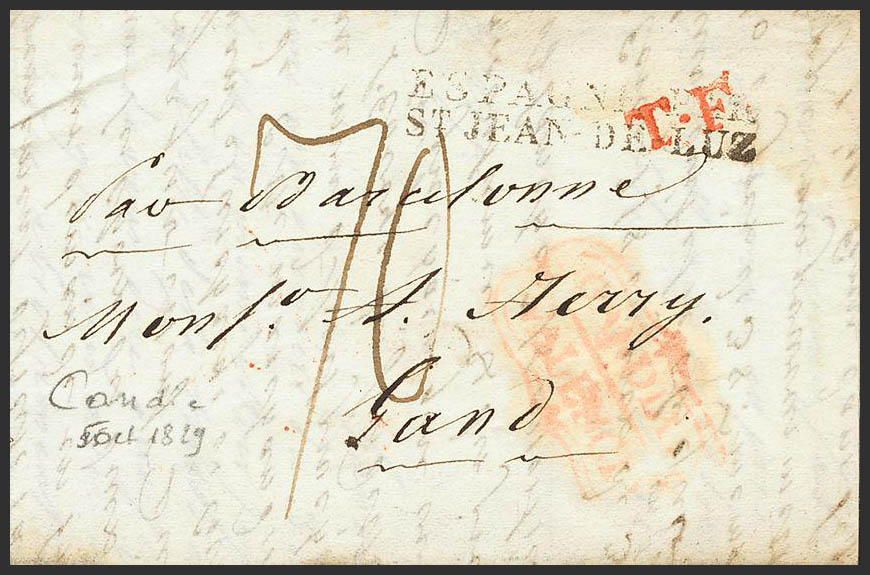 ESPAGNE PAR
T.F
ST JEAN-DE-LUZ
70
Par Barcelonne
Monsr. A. Herry.
Gand
5 Oct 1829